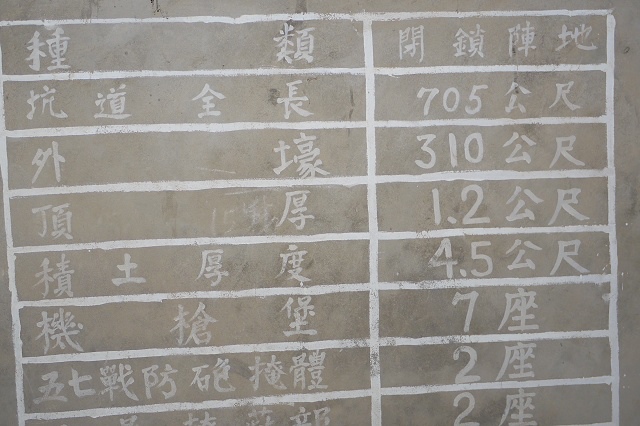 種類 閉鎖陣地
坑道全長 705公尺
外壕 310公尺
頂厚 1.2公尺
積土厚度 4.5公尺
機槍堡 7座
五七戰防砲掩體 2座
2座